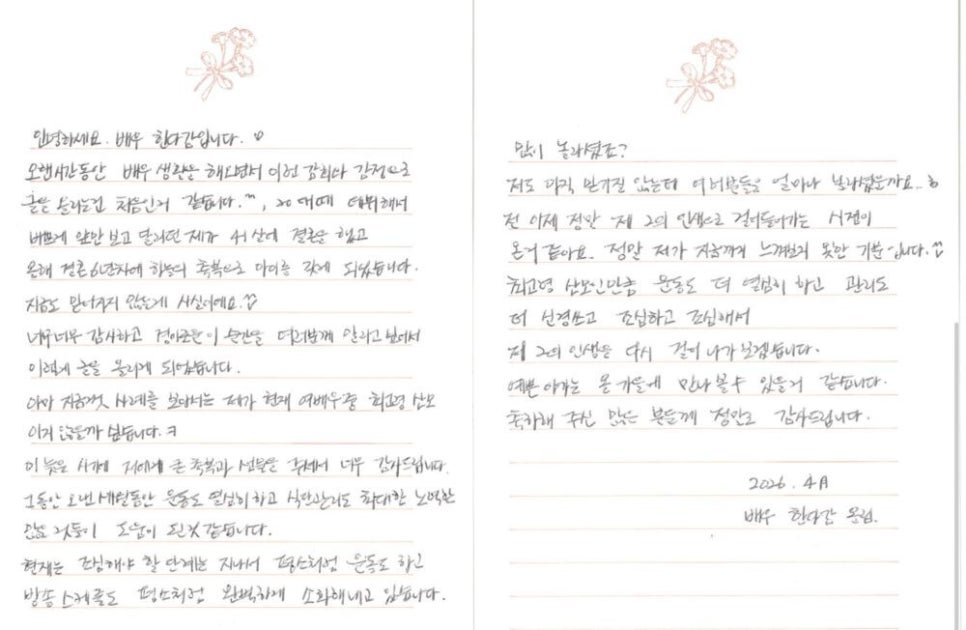 안녕하세요. 배우 한다감입니다.
오랜시간동안 배우 생활을 해오면서 이런 감회와 감정으로
글을 올리는건 처음인거 같습니다.^^, 20대때 데뷔해서
바쁘게 앞만 보고 달리던 제가 41살에 결혼을 했고
올해 결혼 6년차에 하늘의 축복으로 아이를 갖게 되었습니다.
지금도 믿어지지 않는게 사실이에요.
너무너무 감사하고 경이로운 이 순간을 여러분께 알리고 싶어서
이렇게 글을 올리게 되었습니다.
아마 지금껏 사례를 보더라도 제가 현재 여배우중 최고령 산모
이지 않을까 싶습니다.ㅋ
이 늦은 시기에 저에게 큰 축복과 선물을 주셔서 너무 감사드립니다.
그동안 오랜세월동안 운동도 열심히 하고 식단관리도 최대한 노력한
것들이 도움이 된것 같습니다.
현재는 조심해야 할 단계는 지나서 평소처럼 운동도 하고
방송 스케줄도 평소처럼 완벽하게 소화해내고 있습니다.
많이 놀라셨죠?
저도 아직 믿기질 않는데 여러분들은 얼마나 놀라셨을까요..
전 이제 정말 제 2의 인생으로 걸어들어가는 시점이
온거 같아요. 정말 제가 지금까지 느껴보지 못한 기분입니다.
최고령 산모인만큼 운동도 더 열심히 하고 관리도
더 신경쓰고 조심하고 조심해서
제 2의 인생을 다시 걸어 나가 보겠습니다.
예쁜 아가는 올 가을에 만나 볼수 있을거 같습니다.
축하해 주신 많은 분들께 정말로 감사드립니다.
2026. 4월
배우 한다감 올림.